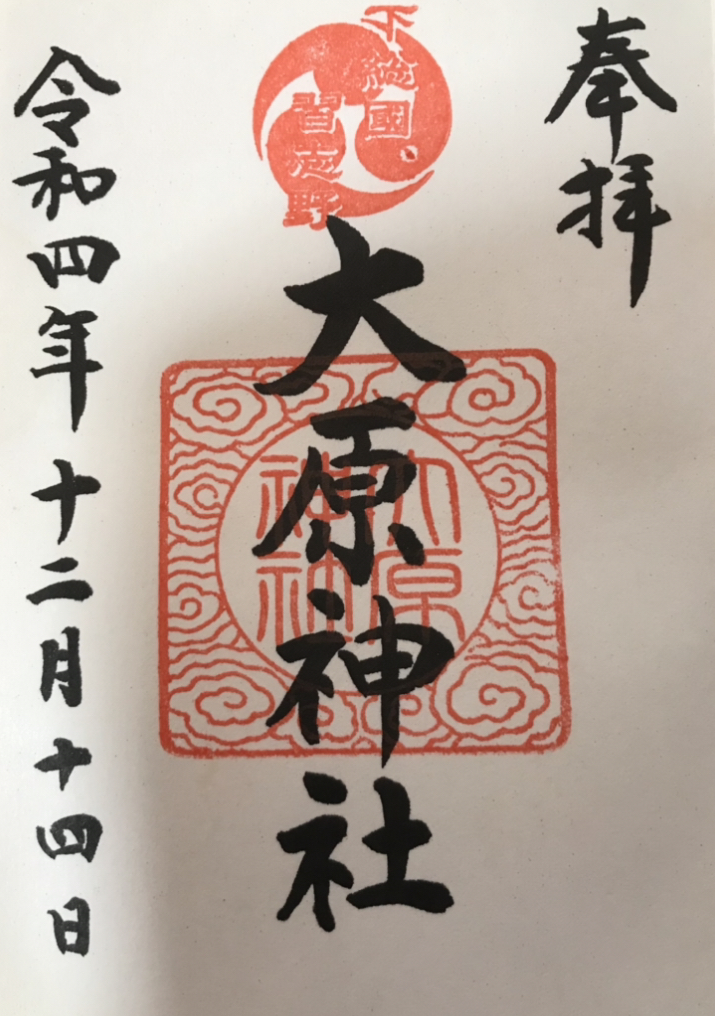 奉拝
下総國
習志野
大原神社
大原
神社
令和四年十二月十四日